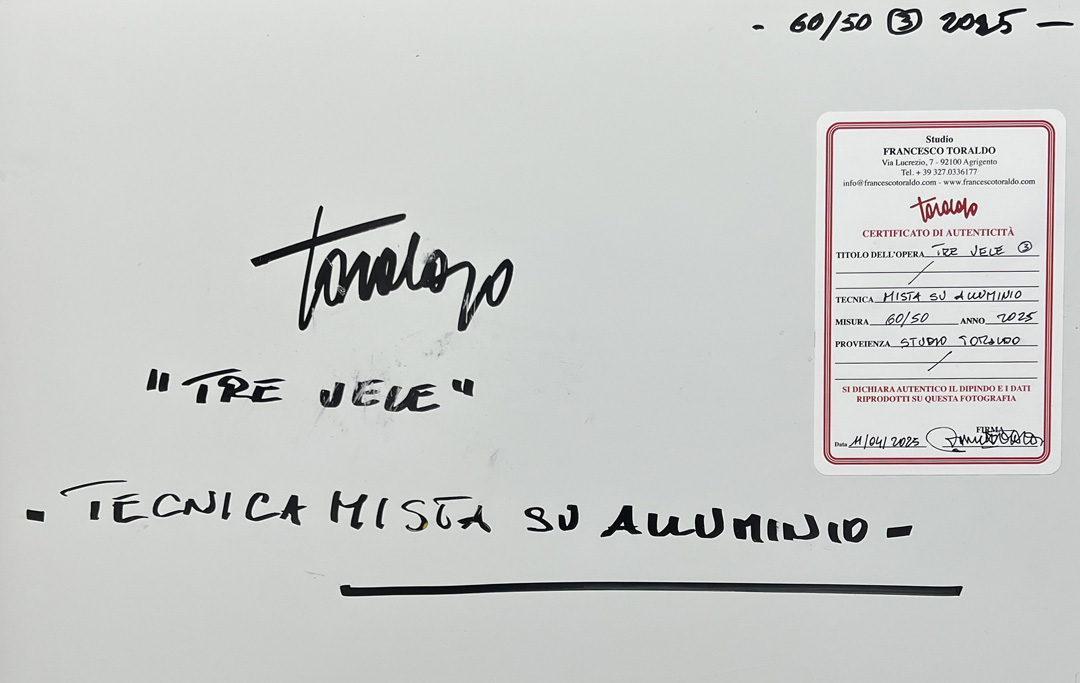 - 60/50 ③ 2025 -
Studio
FRANCESCO TORALDO
Via Lucrezio, 7 - 92100 Agrigento
Tel. + 39 327.0336177
info@francescotoraldo.com - www.francescotoraldo.com
toraldo
CERTIFICATO DI AUTENTICITÀ
TITOLO DELL'OPERA TRE VELE ③
TECNICA MISTA SU ALLUMINIO
MISURA 60/50 ANNO 2025
PROVEIENZA STUDIO TORALDO
SI DICHIARA AUTENTICO IL DIPINDO E I DATI
RIPRODOTTI SU QUESTA FOTOGRAFIA
FIRMA
Data 11/04/2025
toraldo
"TRE VELE"
- TECNICA MISTA SU ALLUMINIO -